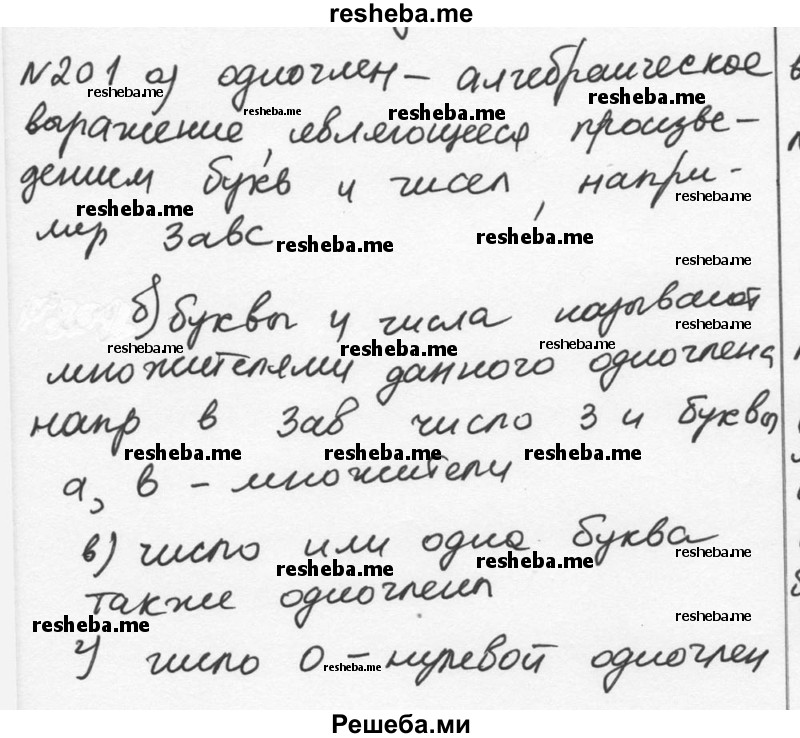 resheba.me
№201 а) одночлен – алгебраическое
resheba.me resheba.me
выражение, являющееся произве-
resheba.me resheba.me resheba.me
дением букв и чисел, напри-
resheba.me resheba.me
мер 3авс
resheba.me resheba.me
resheba.me
б) буквы и числа называют
resheba.me
resheba.me resheba.me resheba.me
множителями данного одночлена
напр в 3ав число 3 и буквы
resheba.me resheba.me resheba.me
а, в – множители
в) число или одна буква
resheba.me resheba.me resheba.me
также одночлен
resheba.me resheba.me
г) число 0 – нулевой одночлен
resheba.me
Решеба.ми